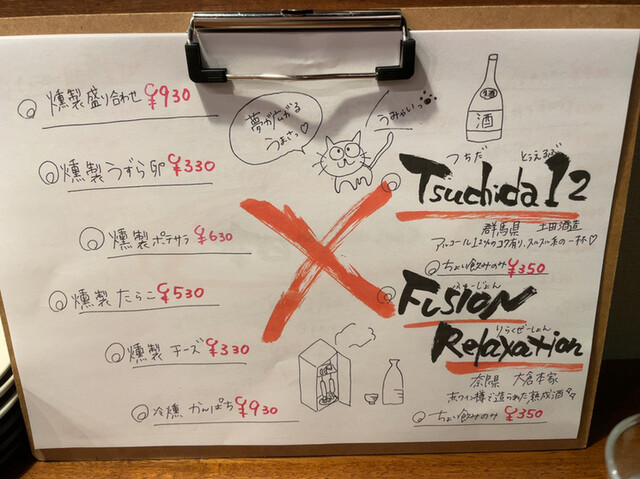 燻製盛り合わせ ¥930
燻製うずら卵 ¥330
燻製ポテサラ ¥630
燻製たらこ ¥530
燻製チーズ ¥330
冷燻かんぱち ¥930
夢が広がる
うまさっ♡
うみかいっ
生酒
酒
つちだ とぅえるぶ
Tsuchida 12
群馬県 土田酒造
アルコール12%のコク有り、スルスル系の一杯♡
ちょい飲みのみ ¥350
ふゅーじょん
FUSION
りらくぜーしょん
Relaxation
奈良県 大倉本家
赤ワイン樽で造られた熟成酒
ちょい飲みのみ ¥350